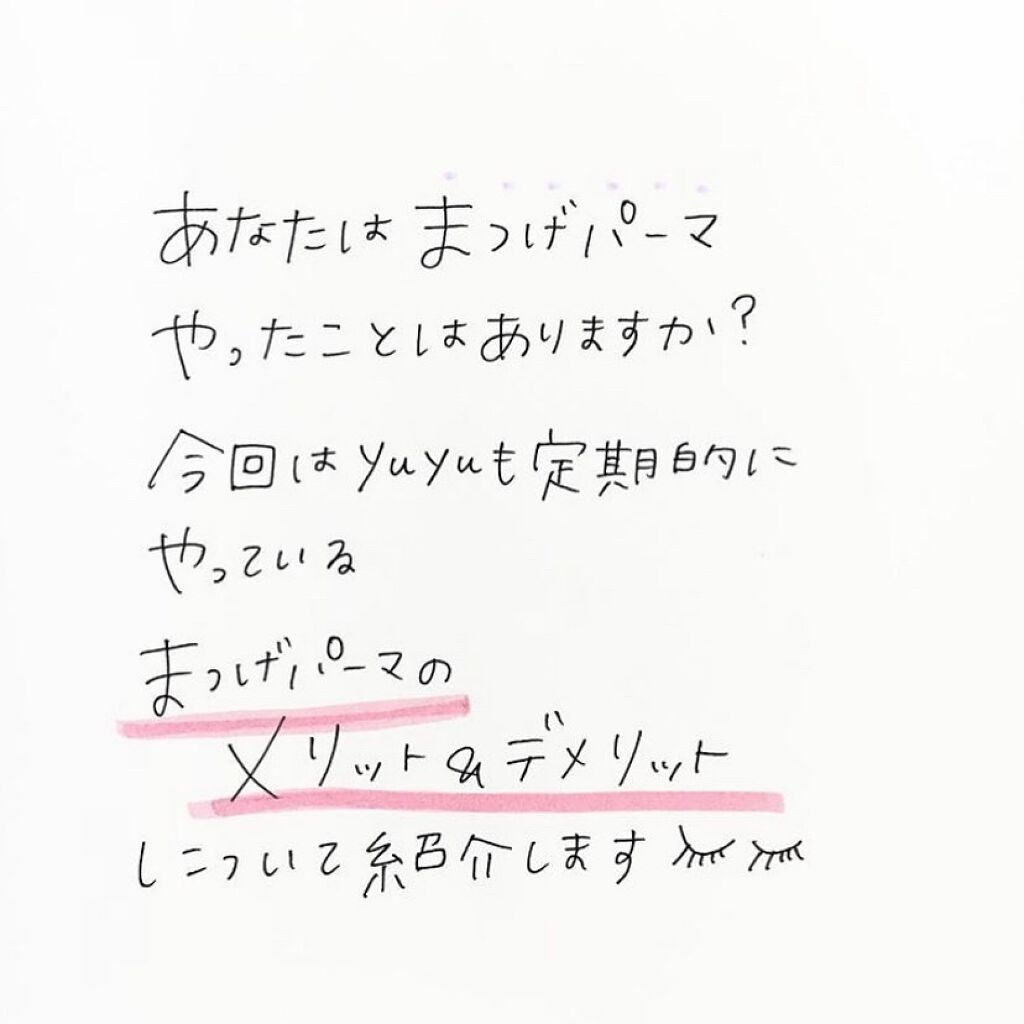 あなたはまつげパーマ
やったことはありますか?
今回はyuyuも定期的に
やっている
まつげパーマの
メリット&デメリット
について紹介します